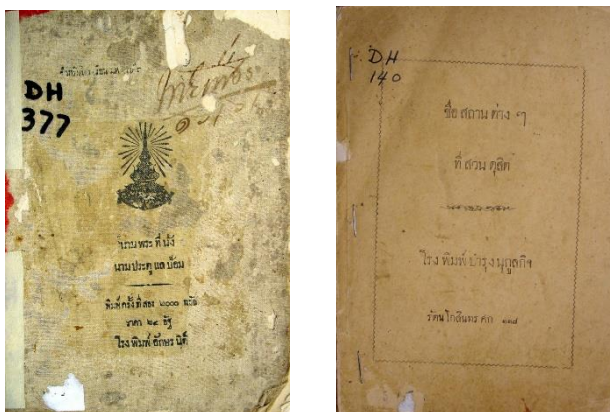 DH
377
นามพระที่นั่ง
นามประตู แล ป้อม
พิมพ์ครั้งที่สอง ๒๐๐๐ ฉบับ
ราคา ๒๔ อัฐ
โรงพิมพ์อักษรนิติ์
DH
140
ชื่อ สถาน ต่าง ๆ
ที่ สวน ดุสิต
โรง พิมพ์ บำรุง นุกูลกิจ
รัตน โกสินทร ศก ๑๑๘